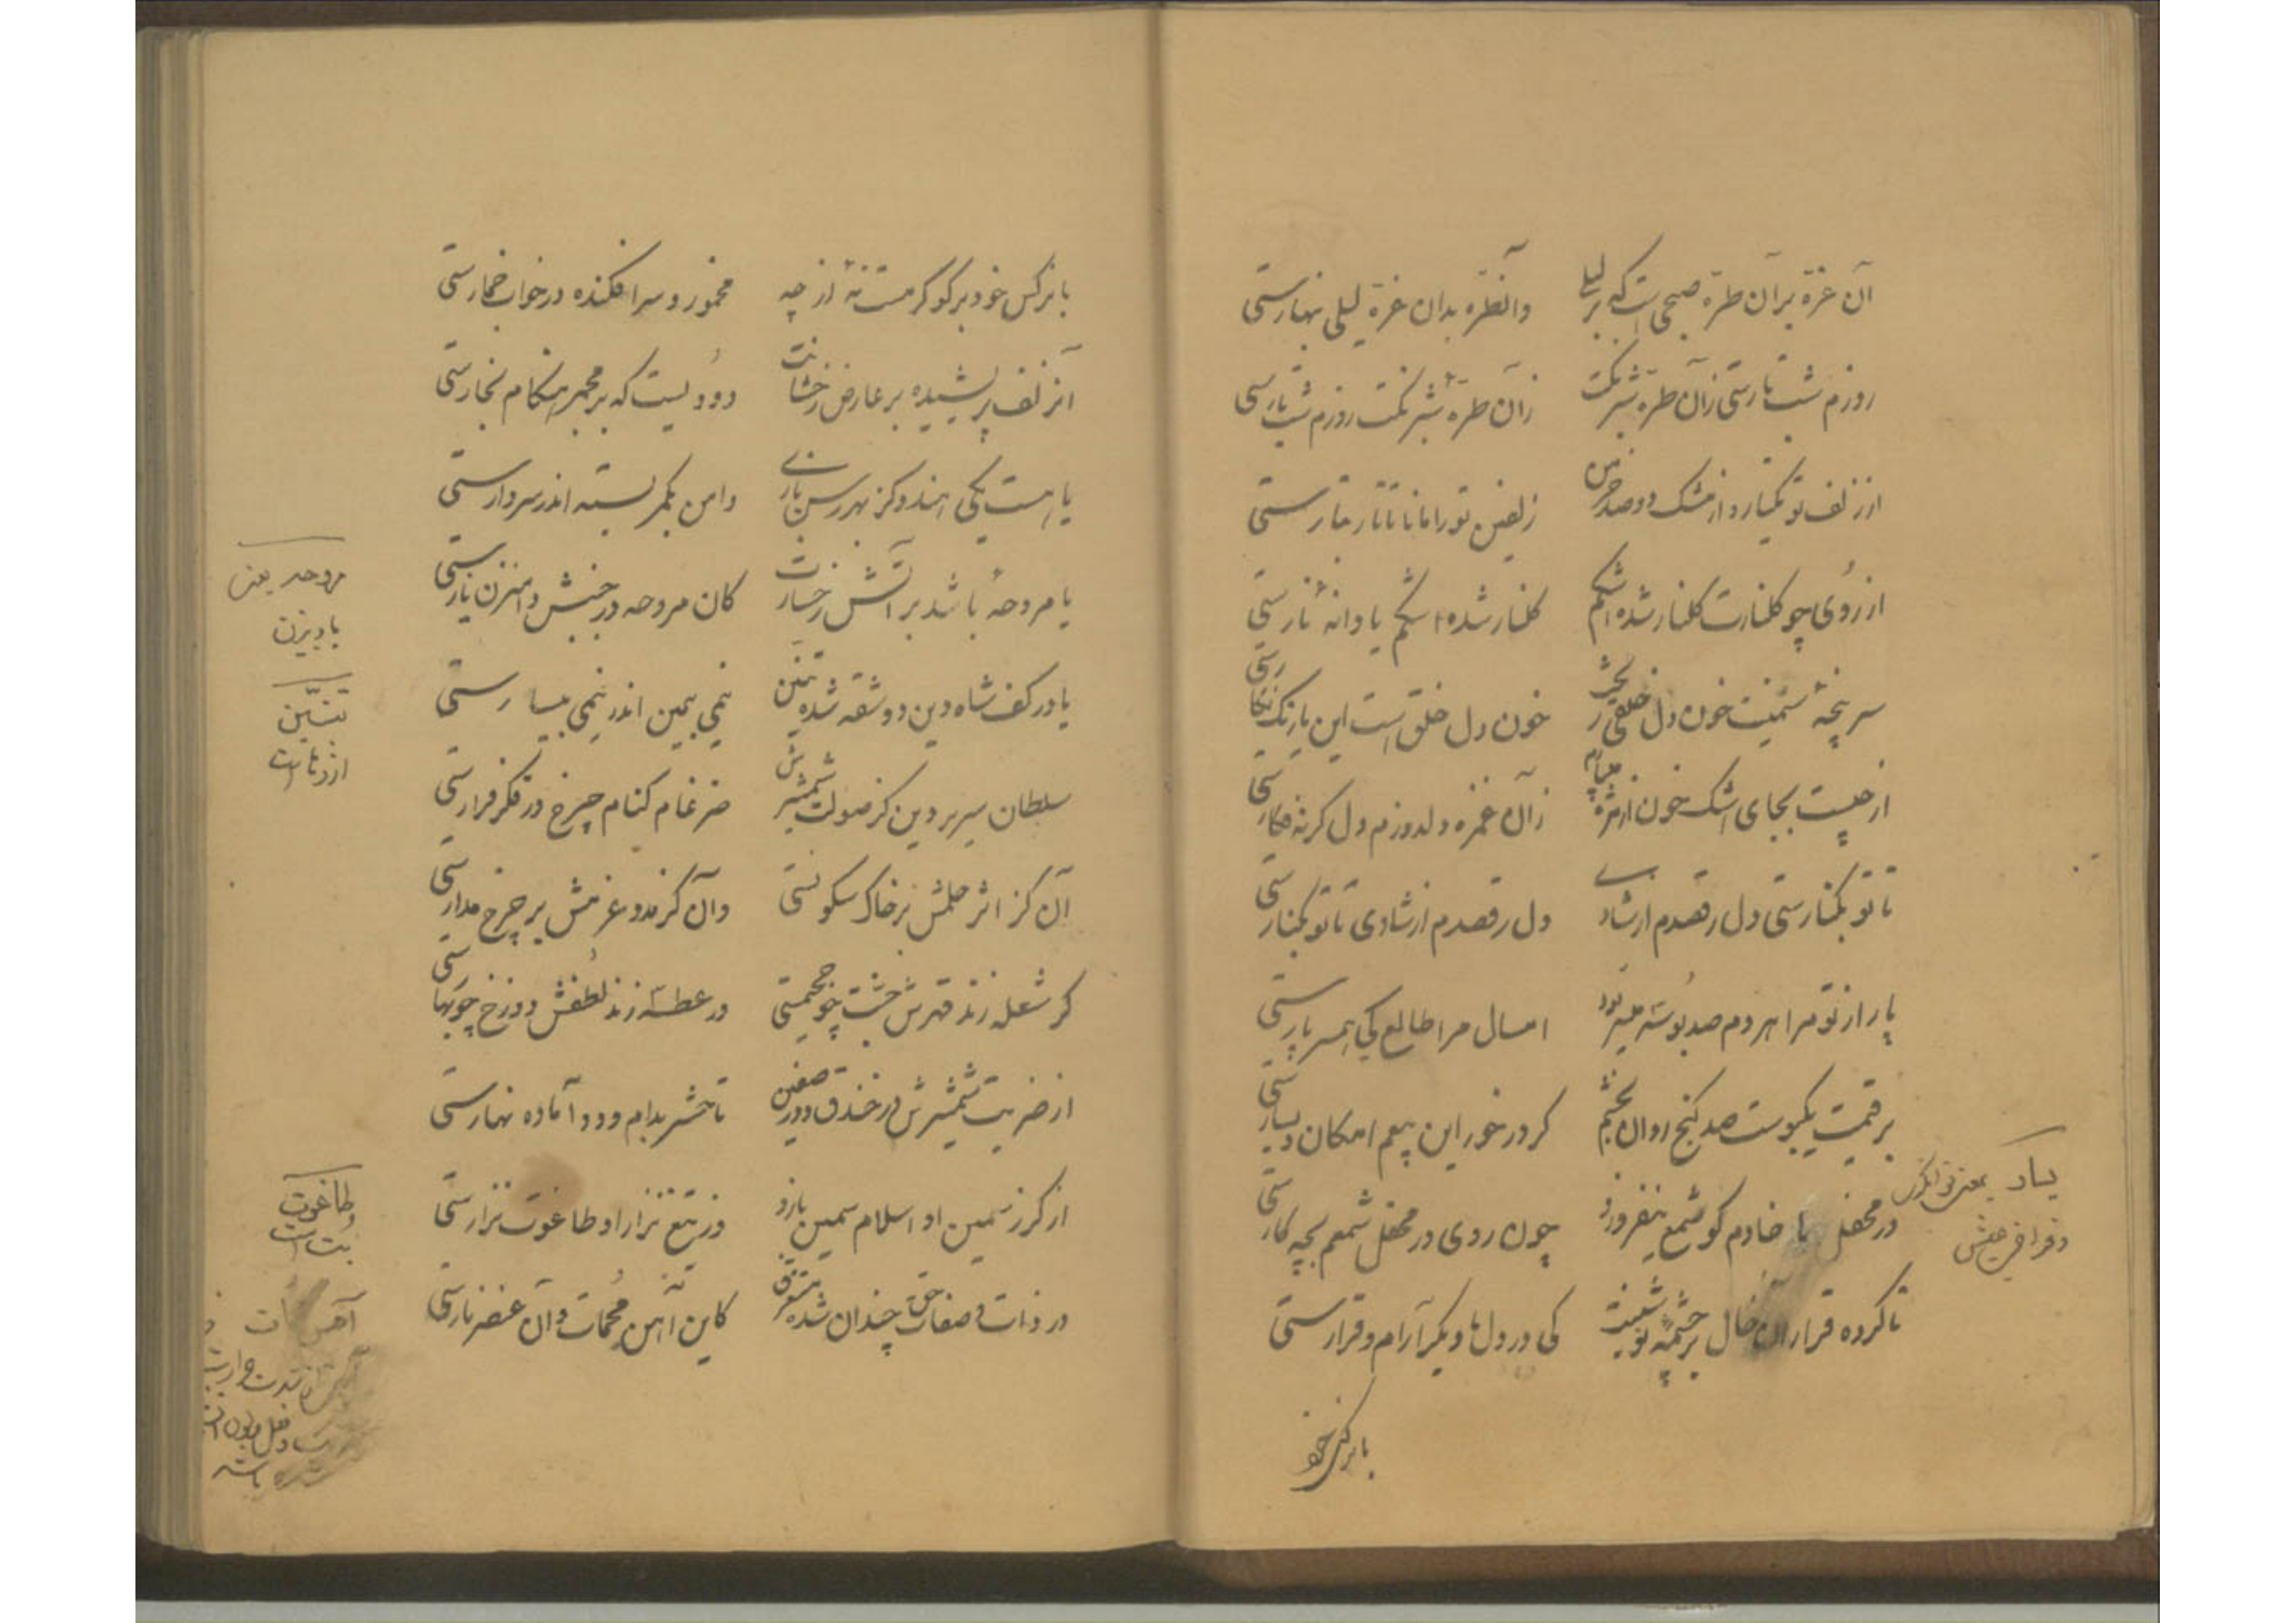 آن غره بر آن طره صبحی است که بر لیلی
وانطره بدان غره لیلی بنهارستی
روزم شب تارستی زان طره شبرنگت
زان طره شبرنگت روزم شب تارستی
از زلف تو یکتار و از مشک دو صد خرمن
زلفین تو را مانا تاتار بتارستی
از روی چو گلنارت گلنار شده اشکم
گلنار شده اشکم یا دانه نارستی
سرپنجه سیمینت خون دل خلقی ریخت
خون دل خلق است این یا رنگ نگارستی
از چیست بجای اشک خون از مژه
زان غمزه دلدوزم دل گرنه فکارستی
تا تو بکنارستی دل رقصدم از شادی
دل رقصدم از شادی تا تو بکنارستی
پار از تو مرا هر دم صد بوسه میسر بود
امسال مرا طالع کی همسر پارستی
بر قیمت یک بوست صد گنج روان بخشم
گر در خور این بیعم امکان و یسارستی
در محفل ما خادم گو شمع نیفروزد
چون روی در محفل شمعم بچه کارستی
تا کرده قرار آن خال بر چشمه نوشینت
کی در دلها دیگر آرام و قرارستی
یسار بمعنی توانگری
و فراخی عیش
با نرگس خود
با نرگس خود بر گو گر مست نه از چه
مخمور و سرافکنده در خواب خمارستی
آنزلف پریشیده بر عارض رخشانت
دودیست که بر مجمر هنگام بخارستی
یا هست یکی هندو کز بهر رسن بازی
دامن بکمر بسته اندر سر دارستی
یا مروحه باشد بر آتش رخسارت
کان مروحه در جنبش دامنزن نارستی
یا در کف شاه دین دو شقه شده تنین
نیمی بیمین اندر نیمی بیسارستی
سلطان سریر دین کز صولت شمشیرش
ضرغام کنام چرخ در فکر فرارستی
آن کز اثر حلمش بر خاک سکونستی
وان کز مدد عزمش بر چرخ مدارستی
گر شعله زند قهرش جنت چو جحیمستی
ور عطسه زند لطفش دوزخ چو بهارستی
از ضربت شمشیرش در خندق و در صفین
تا حشر بدام و دد آماده نهارستی
از گرز سمین او اسلام سمین بازو
وز تیغ نزار او طاغوت نزارستی
در ذات و صفات حق چندان شده مستغرق
کاین آهن محمات و آن عنصر نارستی
مروحه یعنی
بادبزن
تنین
اژدها است
طاغوت
بت است